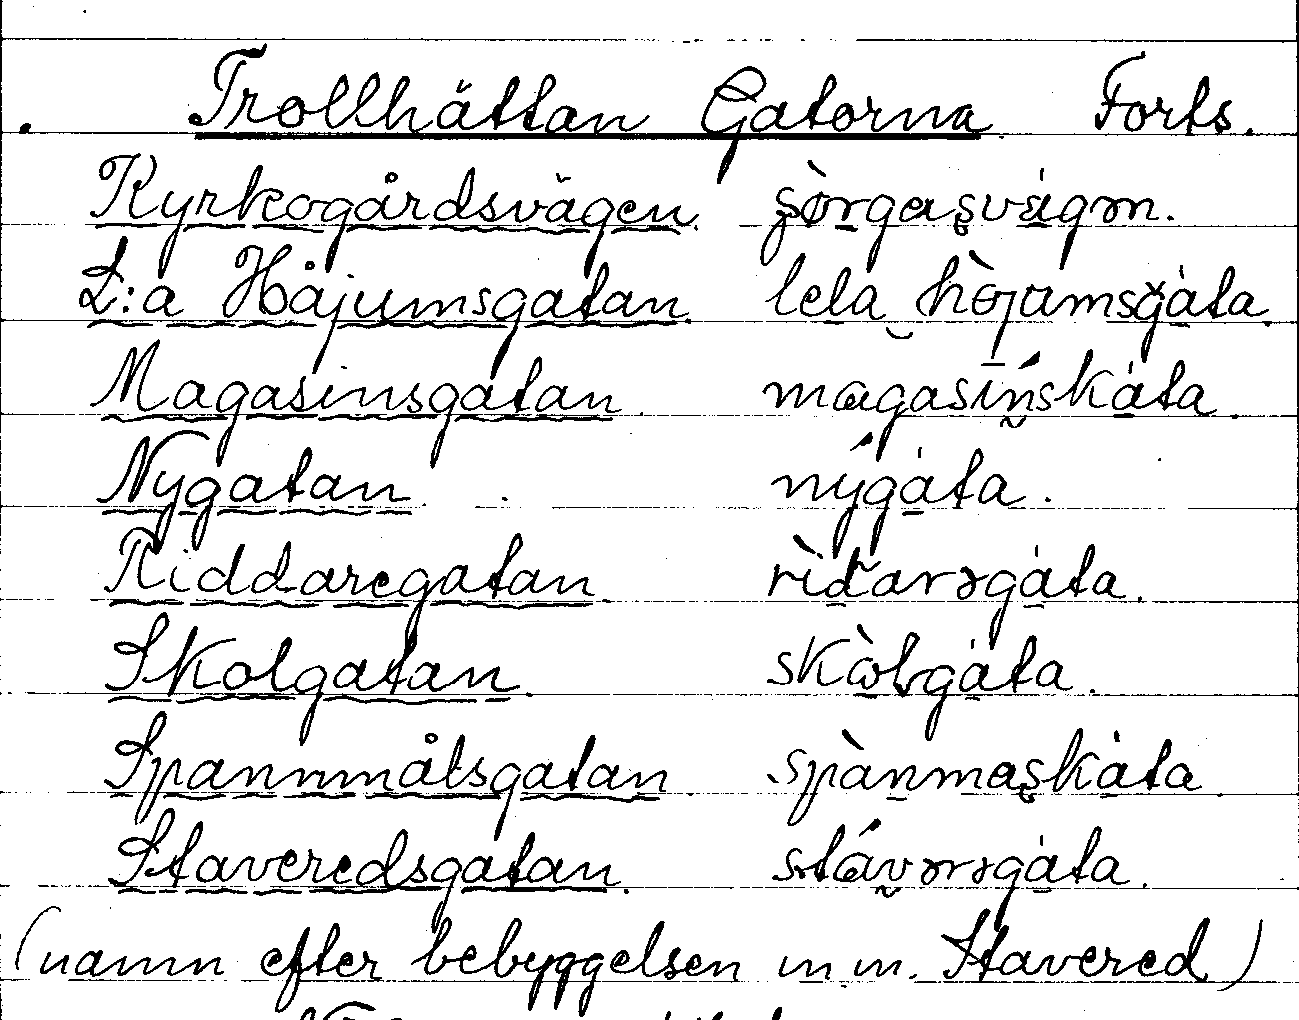 Trollhättan Gatorna Forts.
Kyrkogårdsvägen. şòrgaşvágən.
L:a Håjumsgatan. lela hòjamsgàta.
Magasinsgatan. magasínskàta.
Nygatan. nýgàta.
Riddaregatan. rìdarəgàta.
Skolgatan. skòlgàta.
Spannmålsgatan. spànmaşkàta.
Staveredsgatan. stávərəgàta.
(namn efter bebyggelsen m.m. Stavered)